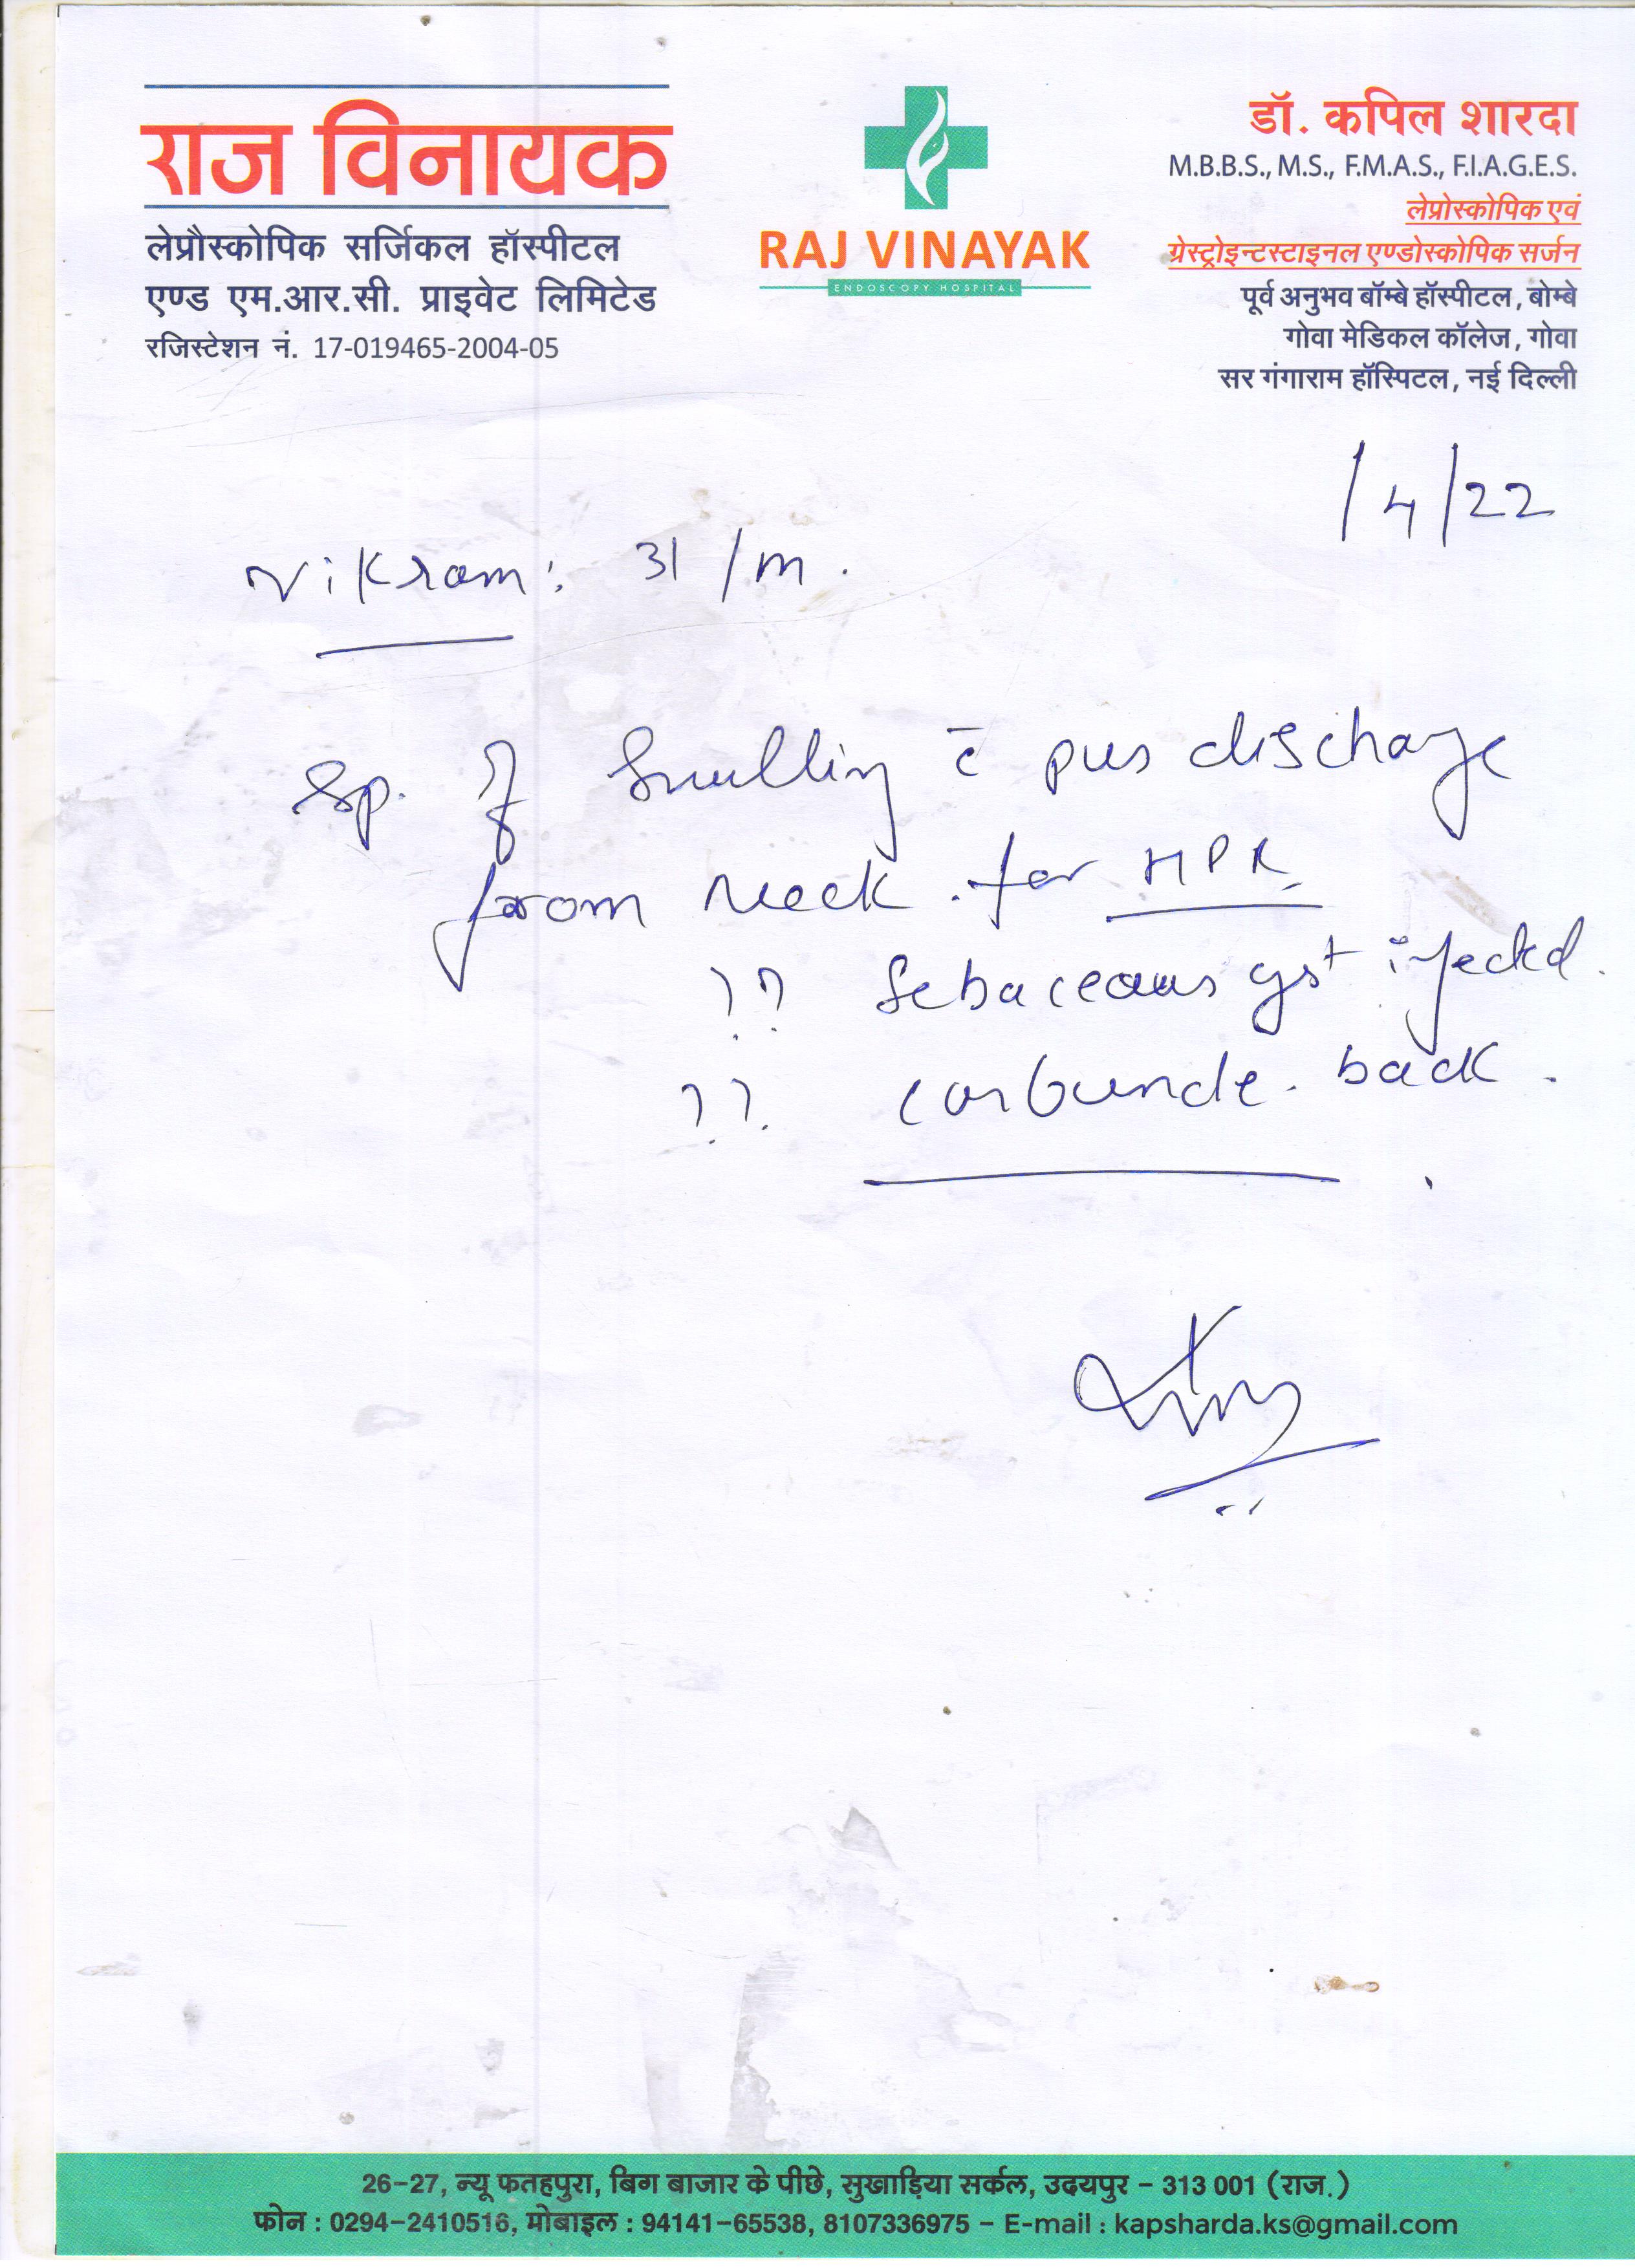 राज विनायक
लेप्रौस्कोपिक सर्जिकल हॉस्पीटल
एण्ड एम.आर.सी. प्राइवेट लिमिटेड
रजिस्टेशन नं. 17-019465-2004-05
RAJ VINAYAK
ENDOSCOPY HOSPITAL
डॉ. कपिल शारदा
M.B.B.S., M.S., F.M.A.S., F.I.A.G.E.S.
लेप्रोस्कोपिक एवं
ग्रेस्ट्रोइन्टस्टाइनल एण्डोस्कोपिक सर्जन
पूर्व अनुभव बॉम्बे हॉस्पीटल, बोम्बे
गोवा मेडिकल कॉलेज, गोवा
सर गंगाराम हॉस्पिटल, नई दिल्ली
/4/22
Vikram: 31/m.
Sp. of Swelling c̄ pus discharge
from neck. for HPR
?? Sebaceous cyst infected.
?? carbuncle. back.
26-27, न्यू फतहपुरा, बिग बाजार के पीछे, सुखाड़िया सर्कल, उदयपुर - 313 001 (राज.)
फोन : 0294-2410516, मोबाइल : 94141-65538, 8107336975 - E-mail : kapsharda.ks@gmail.com